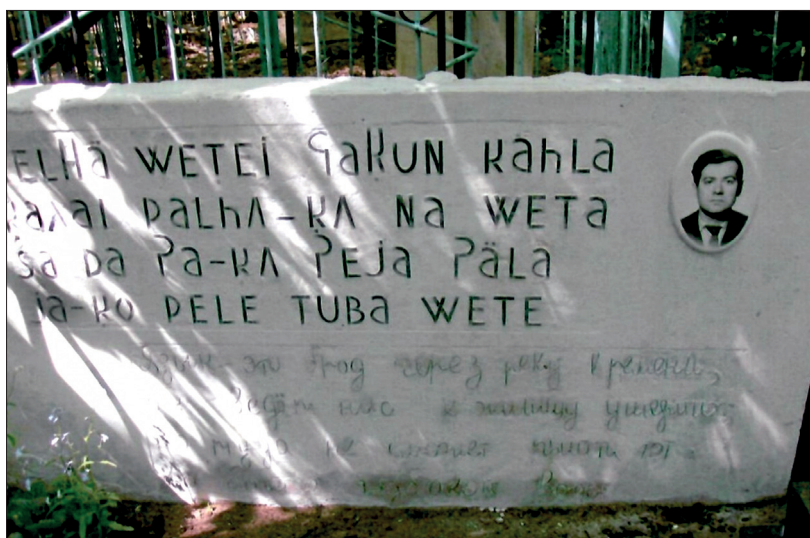 ELHä WETEI ʕaKUN ḳähLa
ḳaλaI PaLhΛ-ḳΛ Na WETa
śa Da ʔa-ḳΛ ʔEJa ʔäLa
ja-ḳo PELE TUBa WETE
Язык - это брод через реку времени,
ведёт нас к жилищу умерших;
не сможет прийти тот,